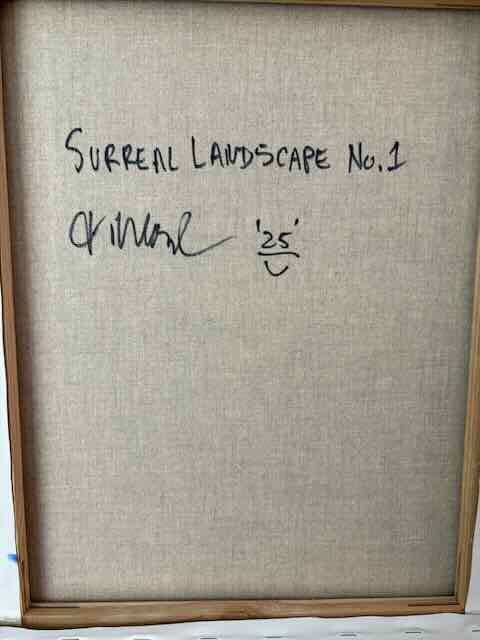 SURREAL LANDSCAPE No.1
'25'